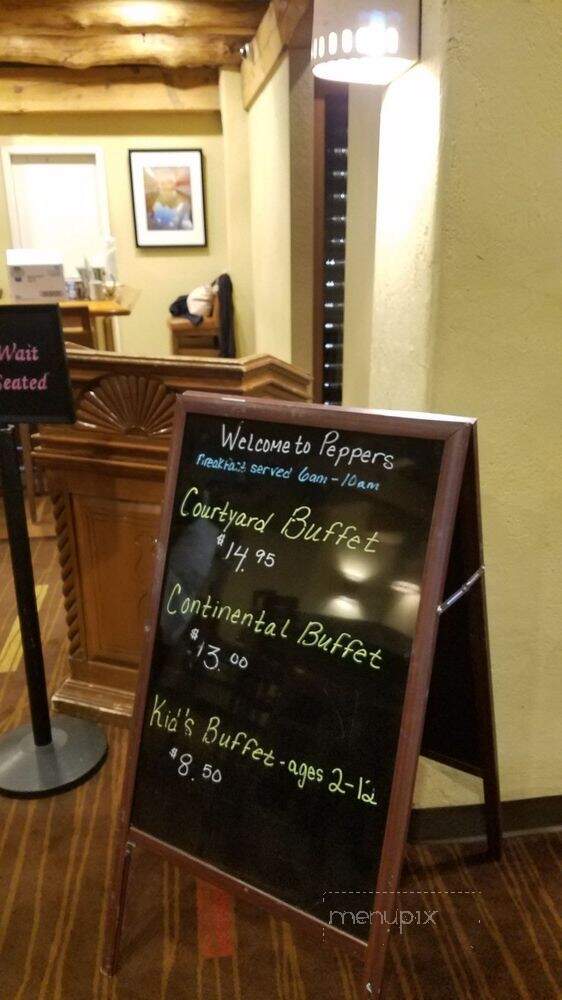 Wait
Seated
Welcome to Peppers
Breakfast served 6am - 10am
Courtyard Buffet
$14.95
Continental Buffet
$13.00
Kid's Buffet - ages 2-12
$8.50
menupix